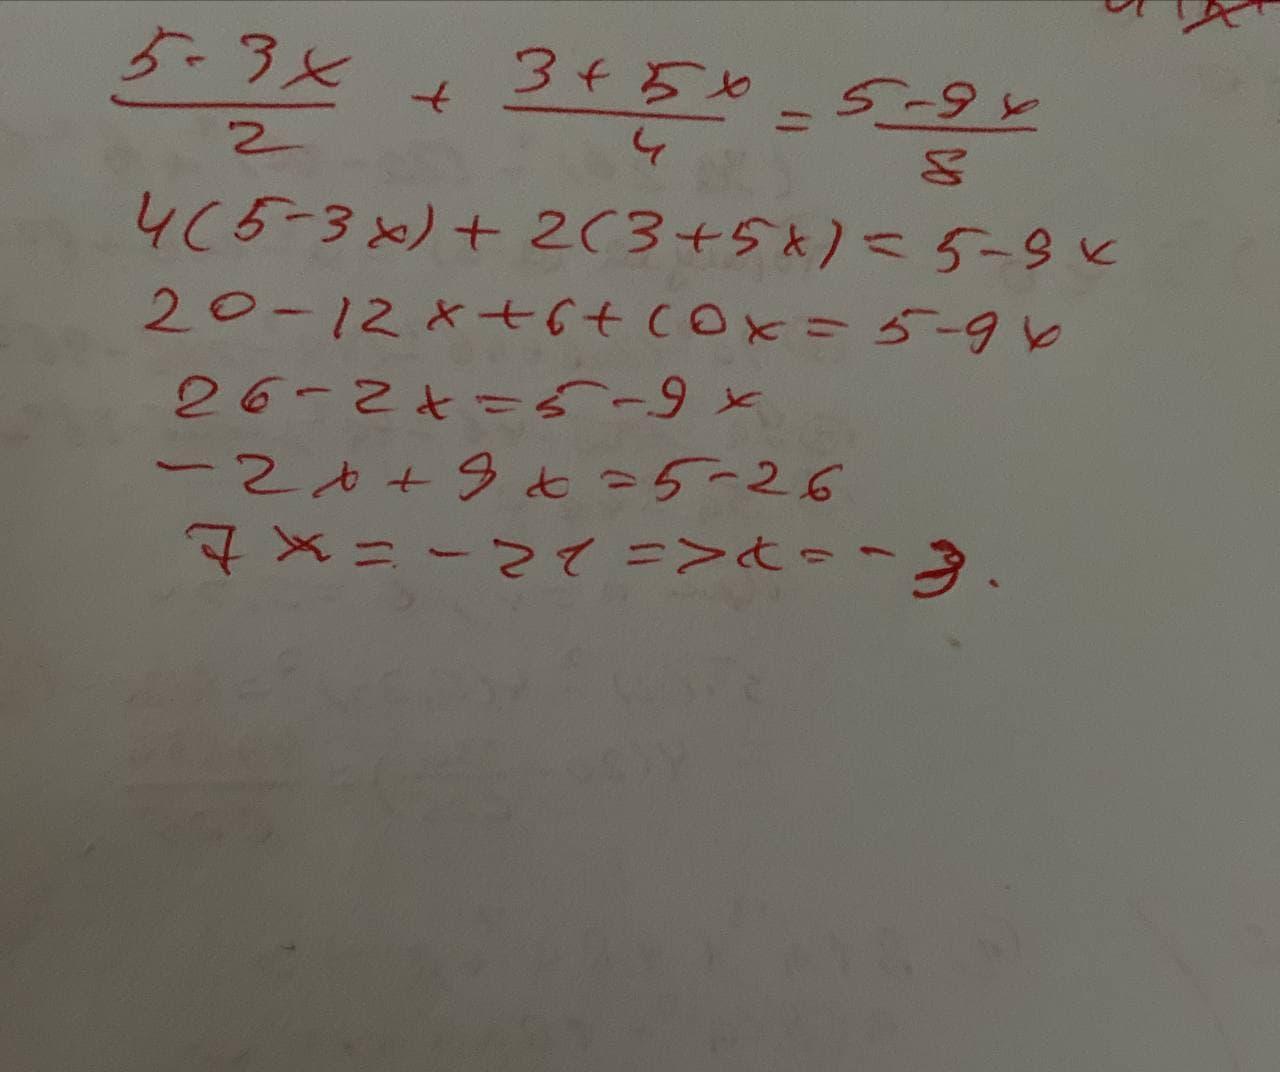 5-3x/2 + 3+5x/4 = 5-9x/8
4(5-3x)+2(3+5x)=5-9x
20-12x+6+10x=5-9x
26-2x=5-9x
-2x+9x=5-26
7x=-21=>x=-3.